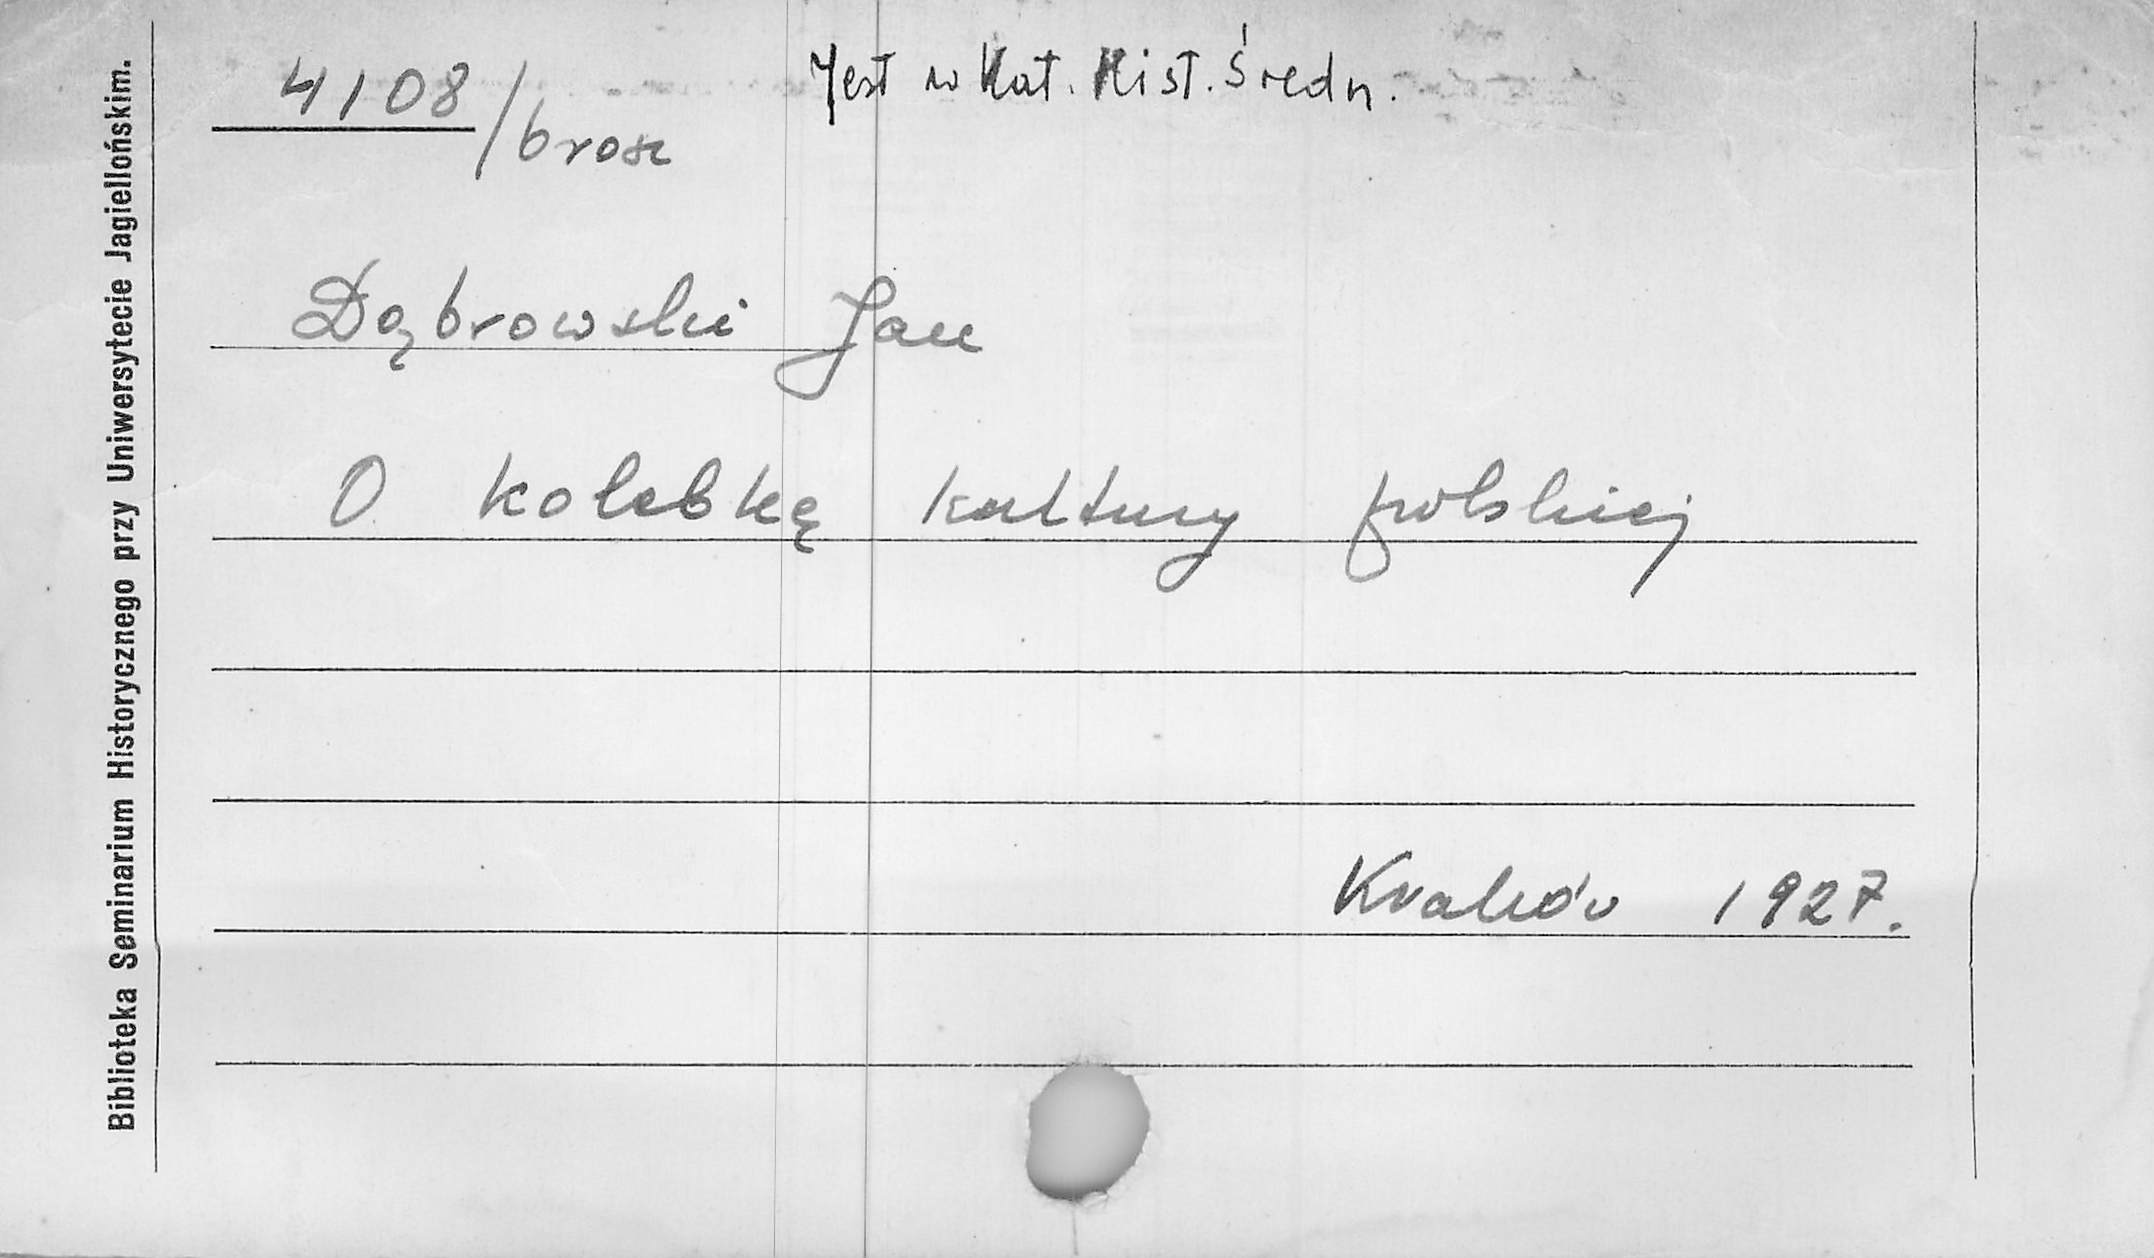 4108/brosz
Jest w Kat. Hist. Średn.
Dąbrowski Jan
O kolebkę kultury polskiej
Kraków 1927.
Biblioteka Seminarium Historycznego przy Uniwersytecie Jagiellońskim.